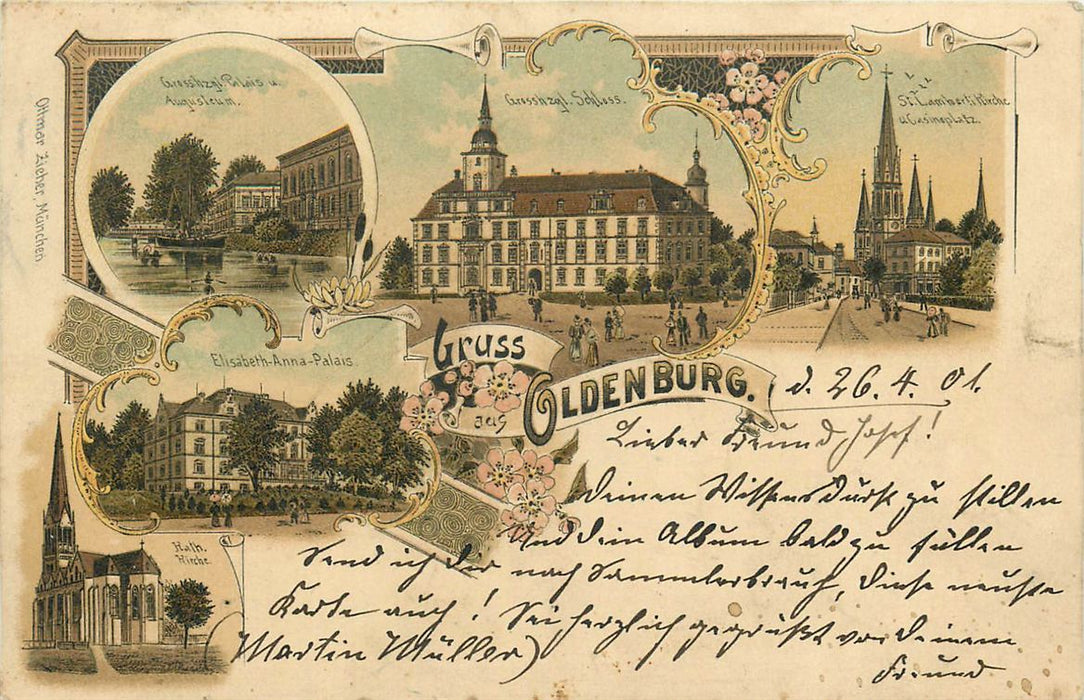 Ottmar Zieher München
Grosshzgl. Palais u.
Augusteum.
Grosshzgl. Schloss.
St. Lamberti Kirche
u. Casinoplatz.
Elisabeth-Anna-Palais.
Kath.
Kirche.
Gruss
aus
OLDENBURG.
d. 26. 4. 01.
Lieber Freund Josef!
Deinen Wissensdurst zu stillen
Und dein Album bald zu füllen
Send ich dir nach Sammlerbrauch, diese neuste
Karte auch! Sei herzlich gegrüßt von Deinem
Freund
(Martin Müller)